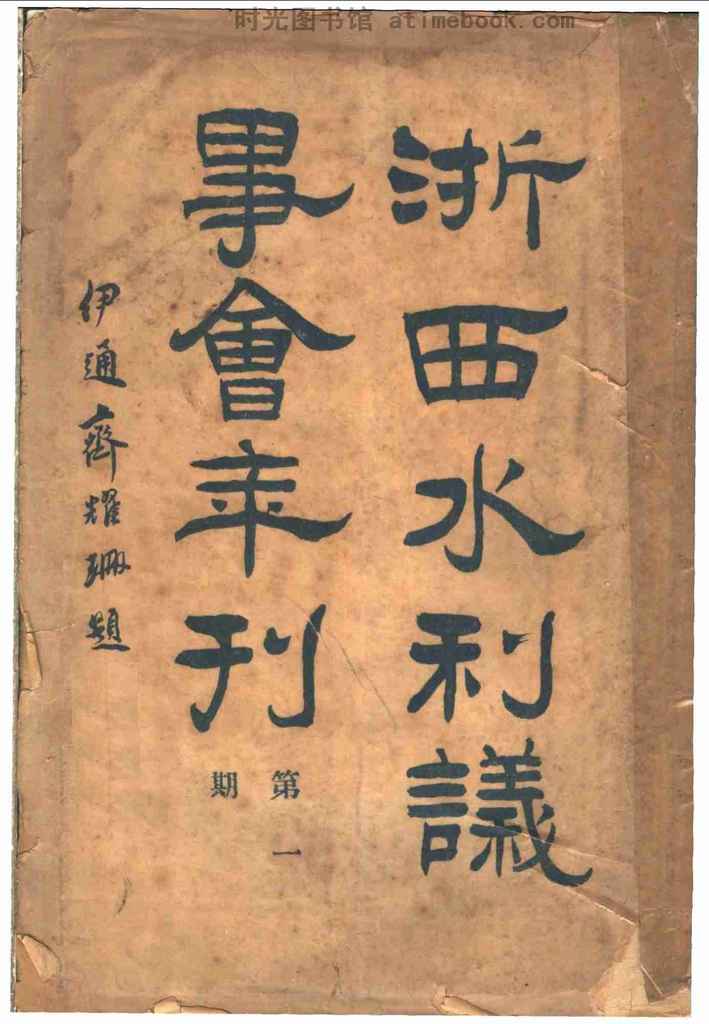 时光图书馆 atimebook.com
浙西水利議
事會年刊
第一
期
伊通齊耀珊題